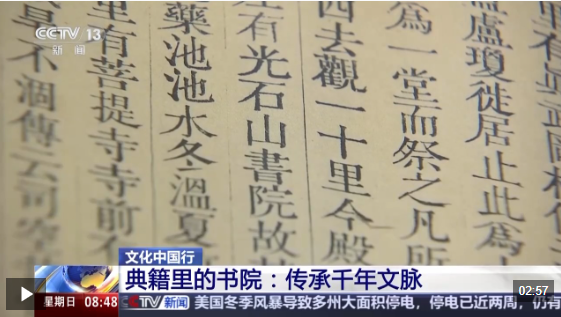 CCTV 13
新闻
盧瓊徙居止此為
為一堂而祭之凡所
四去觀一十里今殿
左有光石山書院故
藥池池水冬溫夏
里有菩提寺寺前
不涸傳云司空
文化中国行
典籍里的书院：传承千年文脉
02:57
星期日 08:48 CCTV 新闻 美国冬季风暴导致多州大面积停电，停电已近两周，仍有